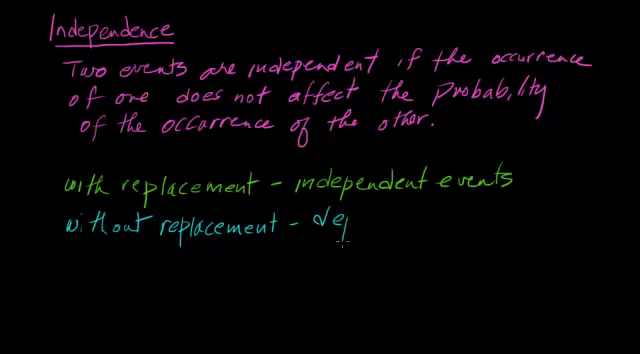 Independence
Two events are independent if the occurrence
of one does not affect the probability
of the occurrence of the other.
with replacement - independent events
without replacement - dep